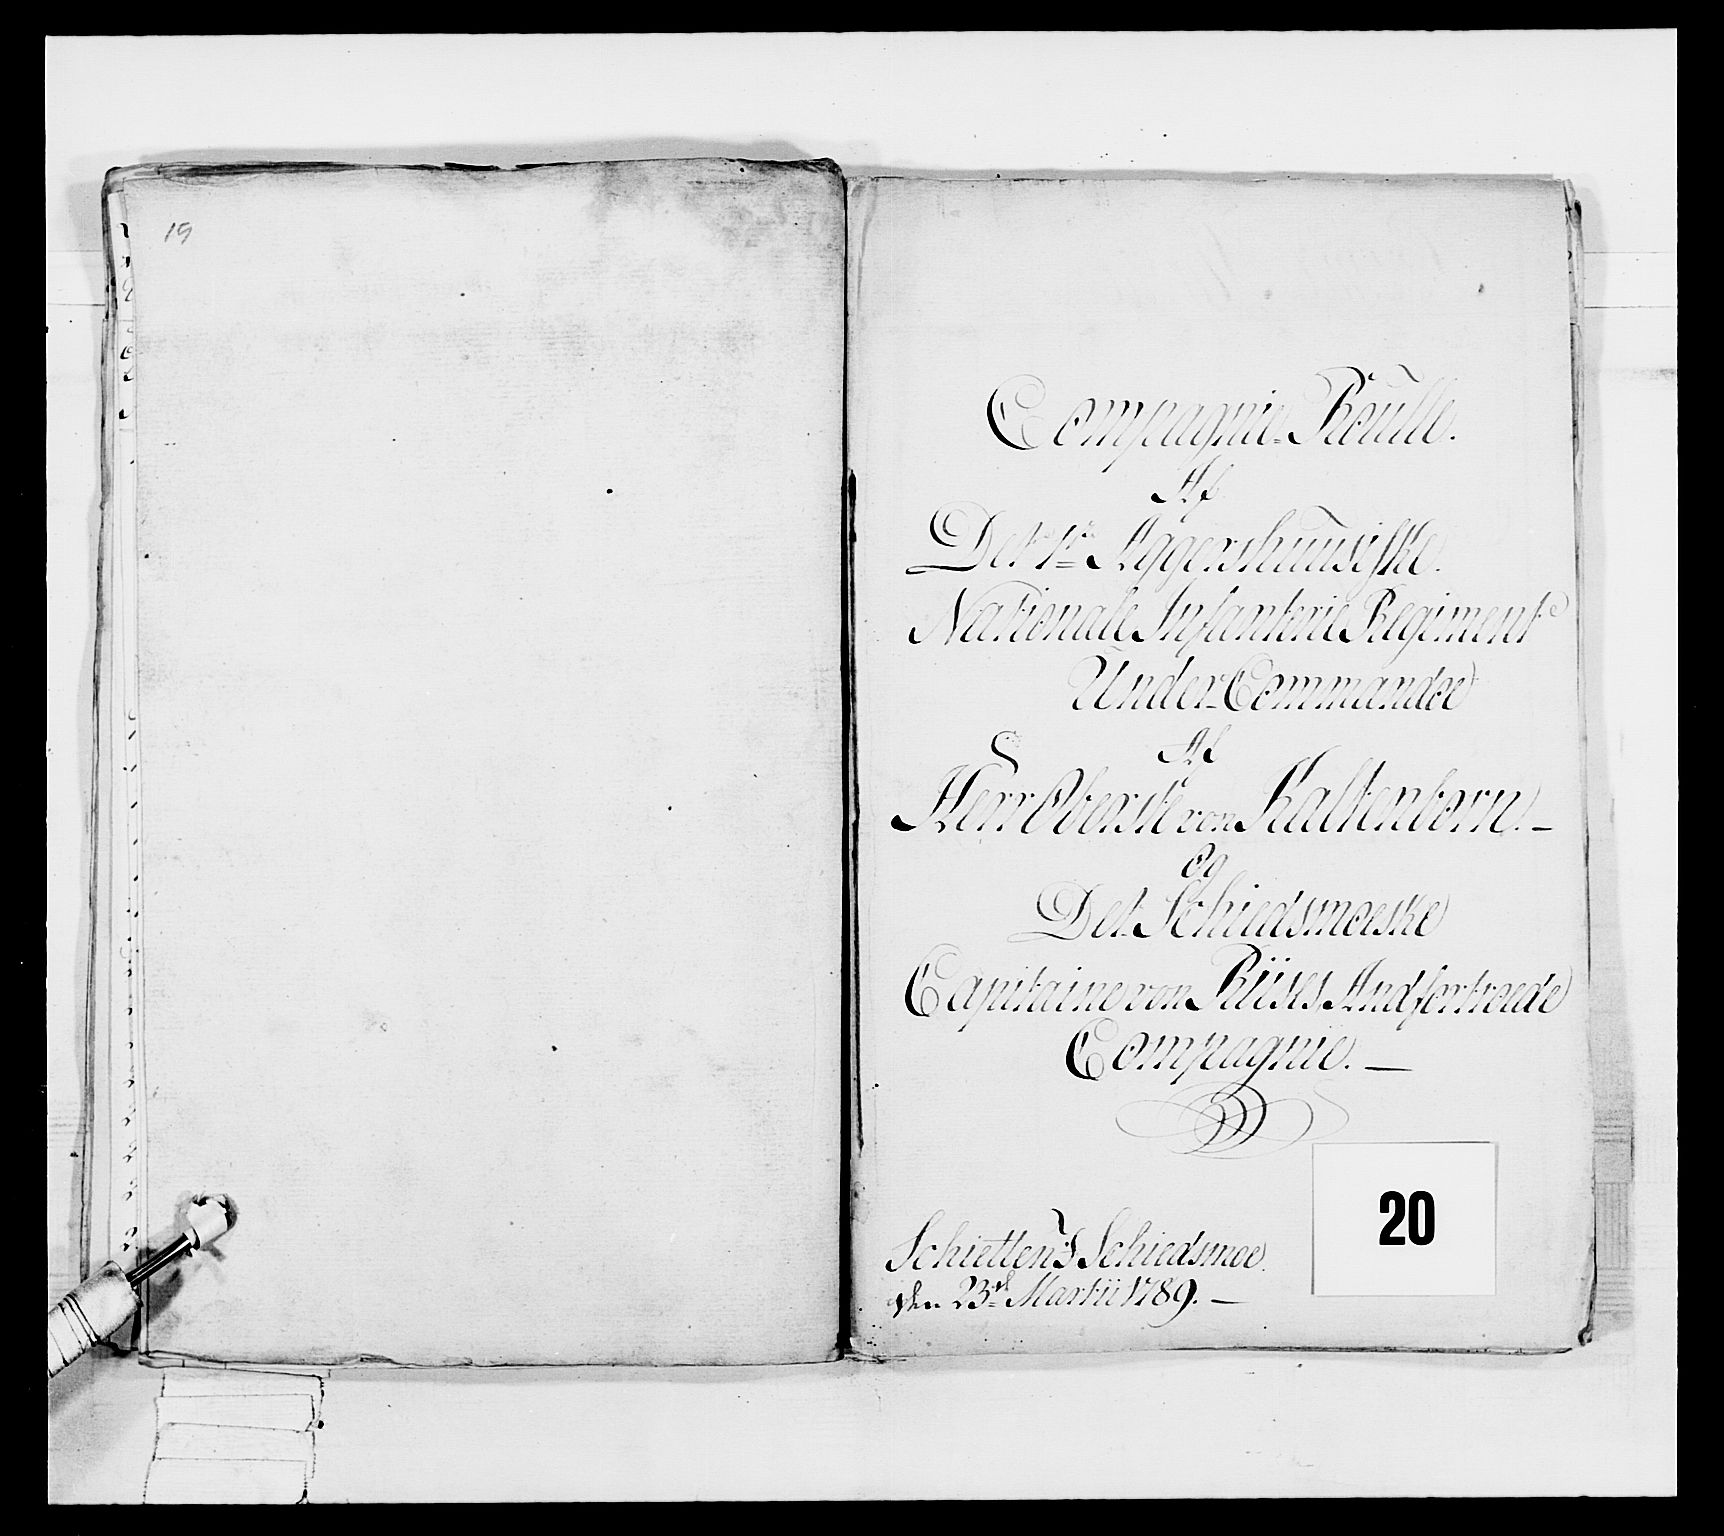 19
Compagnie-Roulle.
Af
Det 1te Aggershuusiske
Nationale Infanterie Regiment
Under-Commandoe
Af
Herr Oberste von Kaltenborn. —
Og
Det Schiedsmoeske
Capitaine von Riises Anfortroede
Compagnie. —
Schietten i Schiedsmoe.
den 23de Martii 1789. —
20